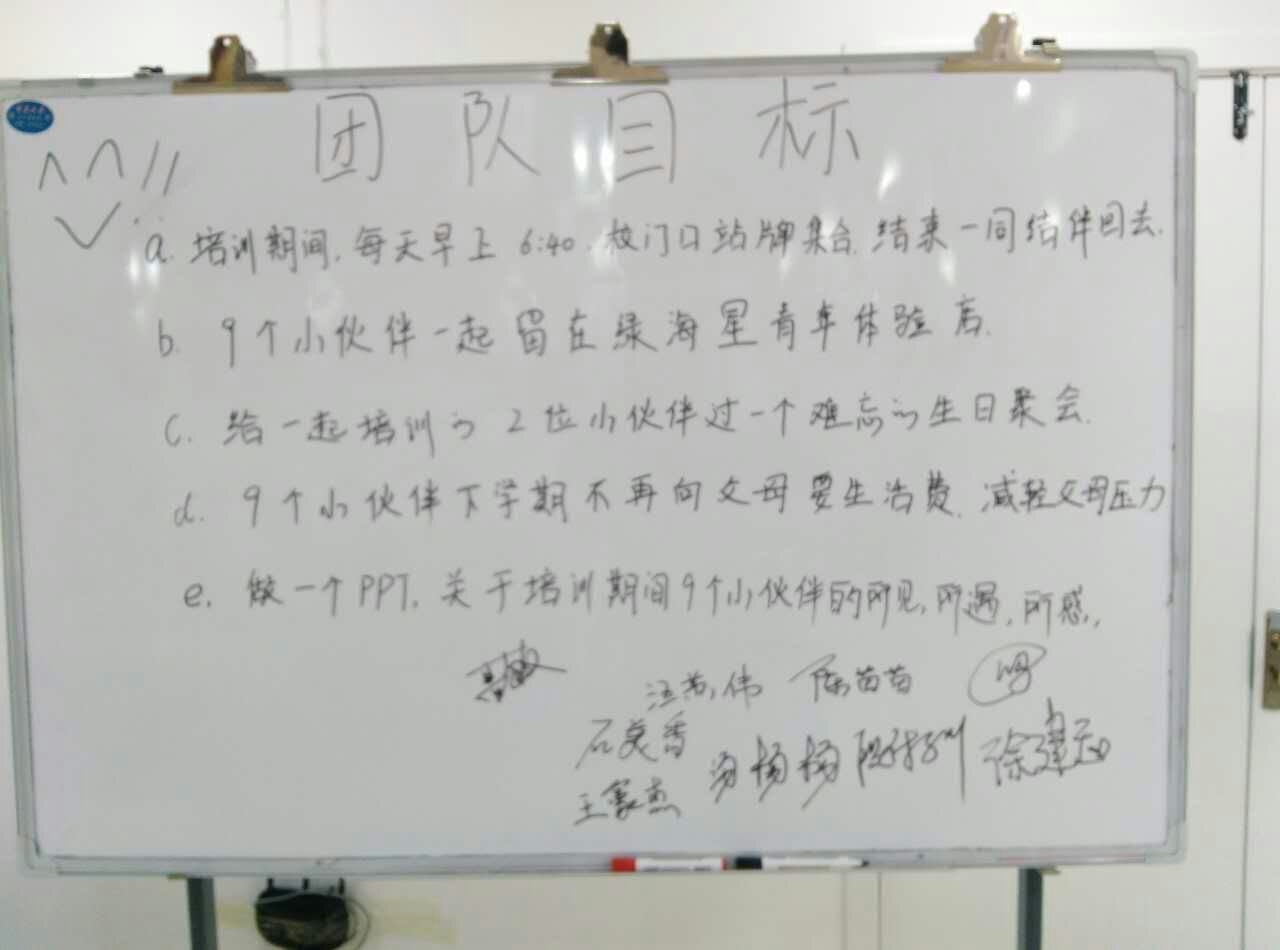 团队目标
a. 培训期间，每天早上6:40，校门口站牌集合，结束一同结伴回去.
b. 9个小伙伴一起留在绿海星青年体验店.
c. 给一起培训的2位小伙伴过一个难忘的生日聚会.
d. 9个小伙伴下学期不再向父母要生活费，减轻父母压力
e. 做一个PPT，关于培训期间9个小伙伴的所见，所遇，所感，
陈苗苗
石美香